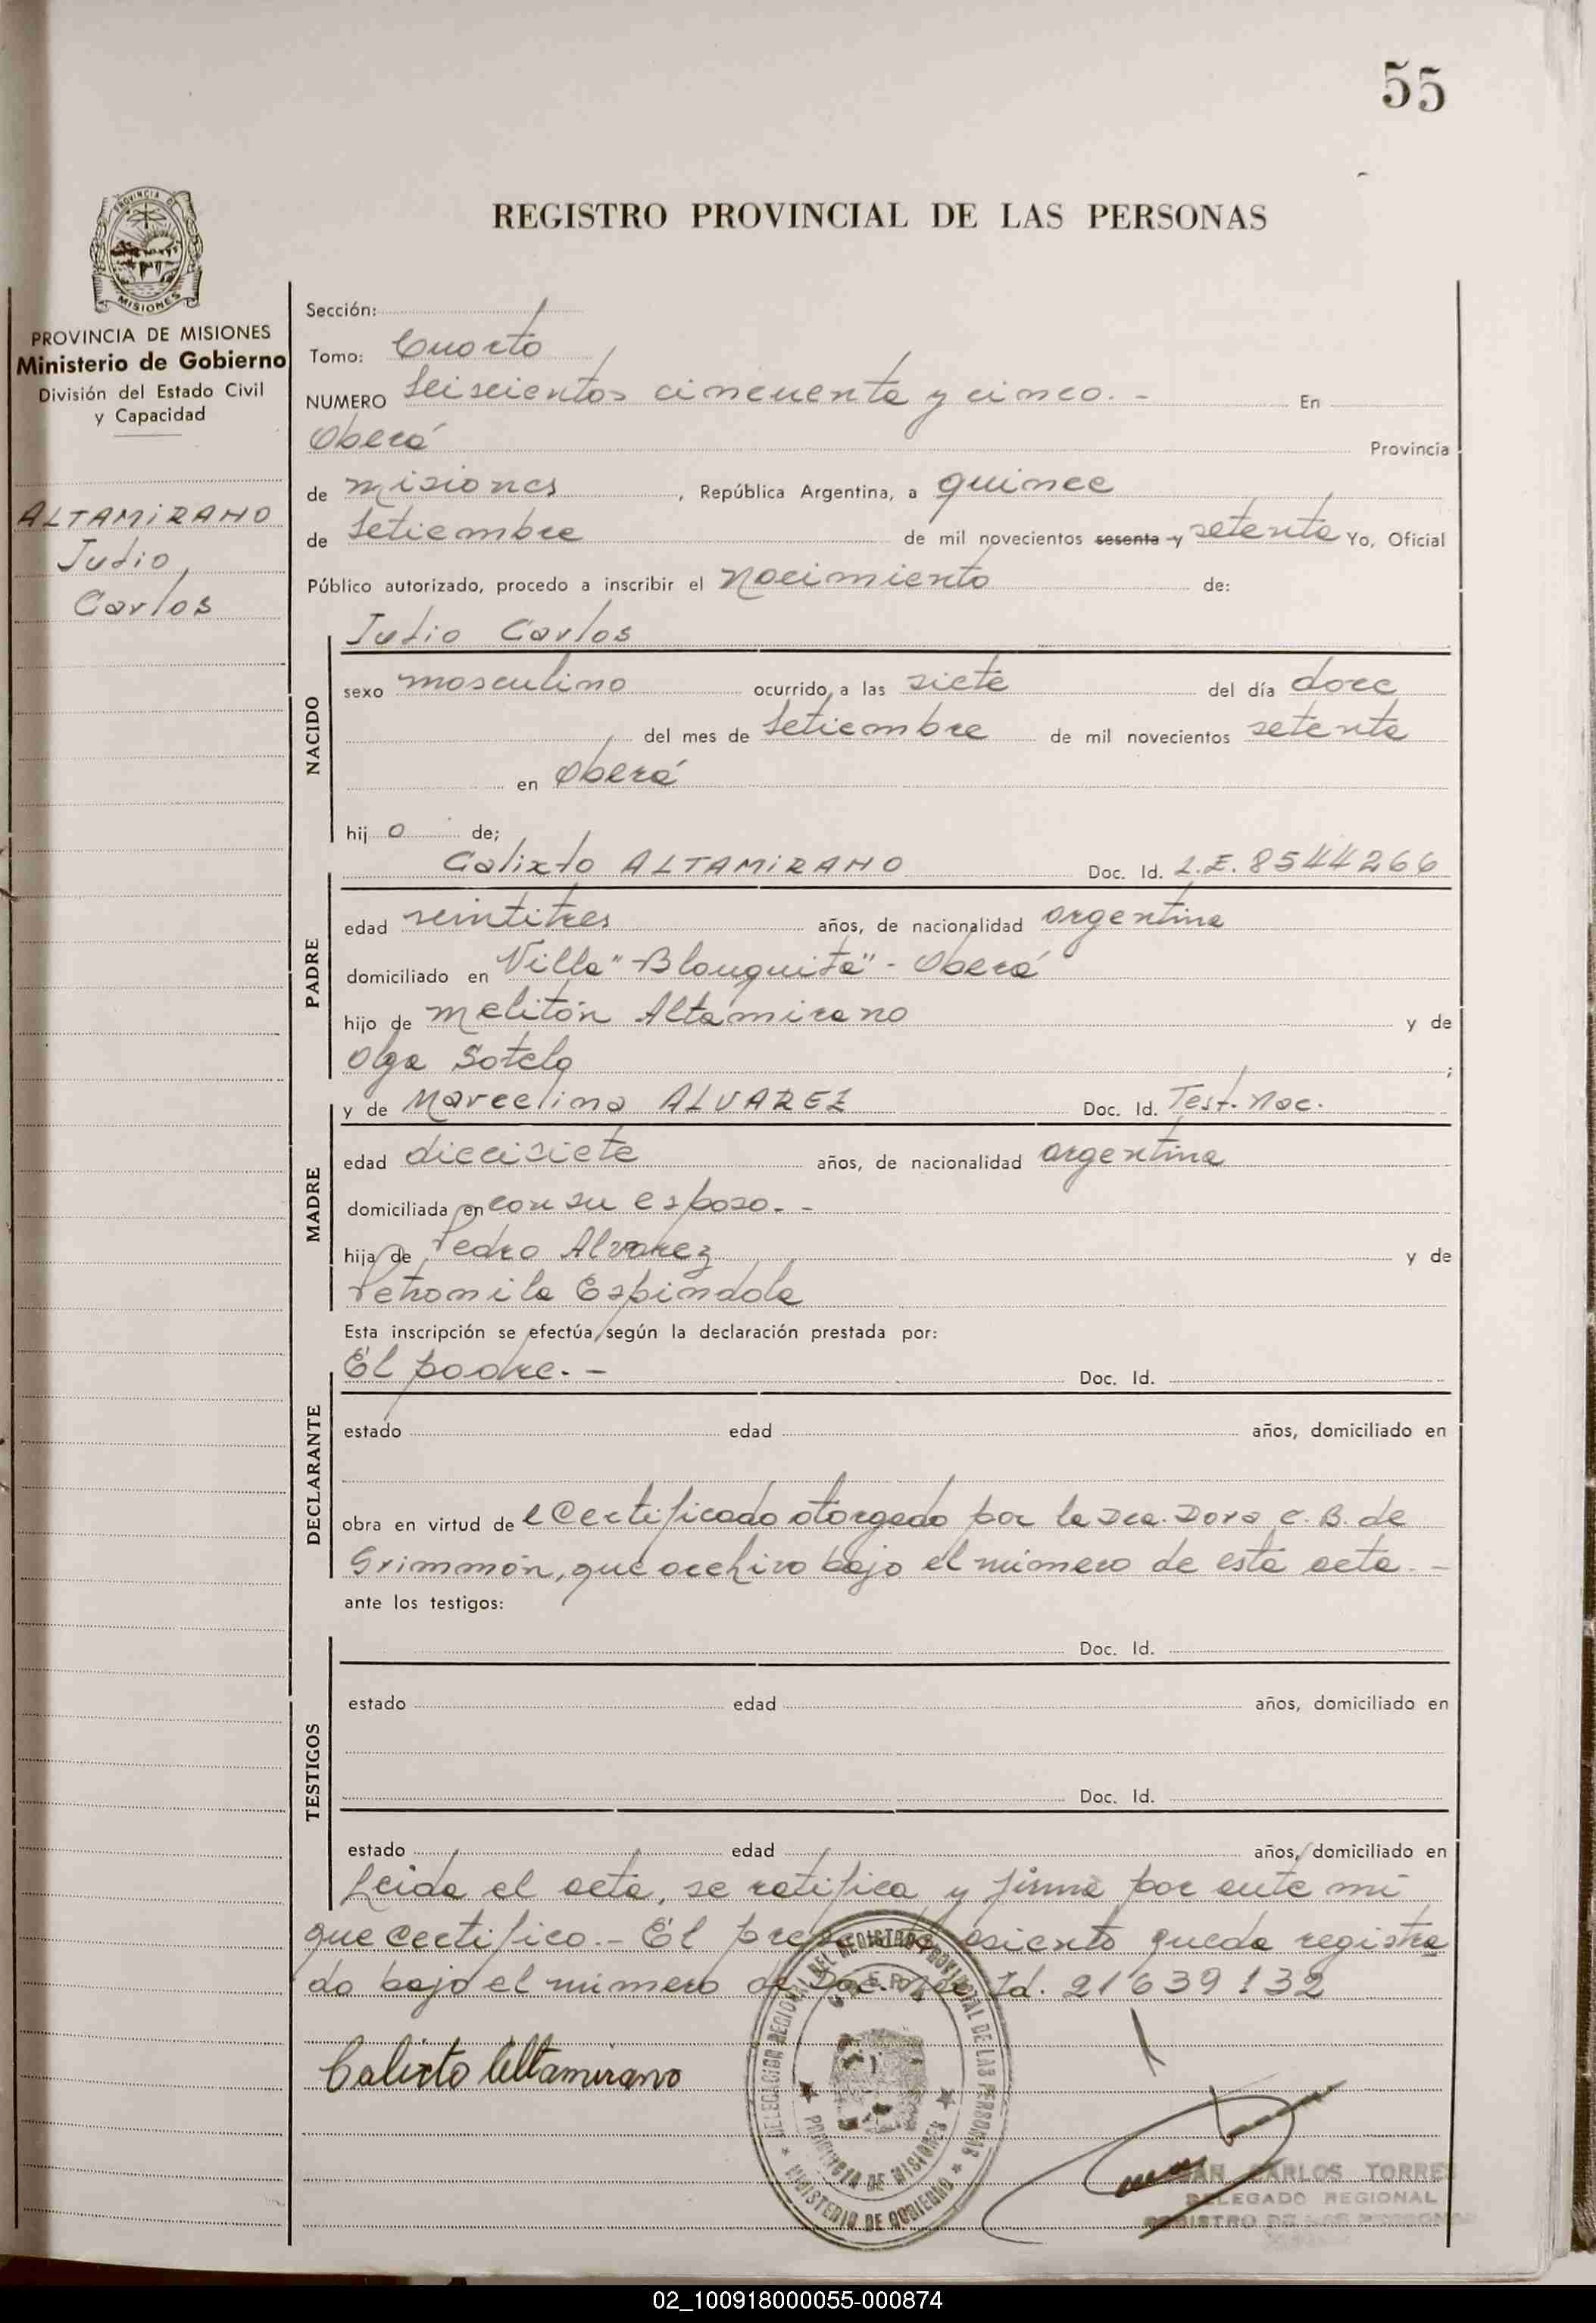 55
REGISTRO PROVINCIAL DE LAS PERSONAS
PROVINCIA DE
MISIONES
PROVINCIA DE MISIONES
Ministerio de Gobierno
División del Estado Civil
y Capacidad
ALTAMIRANO
Julio
Carlos
Sección:
Tomo: Cuarto
NUMERO Seiscientos cincuenta y cinco.- En
Oberá Provincia
de misiones, República Argentina, a quince
de Setiembre de mil novecientos sesenta y setenta Yo, Oficial
Público autorizado, procedo a inscribir el nacimiento de:
NACIDO
Julio Carlos
sexo masculino ocurrido a las siete del día doce
del mes de Setiembre de mil novecientos setenta
en Oberá
hij o de;
PADRE
Calixto ALTAMIRANO Doc. Id. L.E. 8544266
edad veintitres años, de nacionalidad argentina
domiciliado en Villa "Blanquita" - Oberá
hijo de Melitón Altamirano y de
Olga Sotelo ;
MADRE
y de Marcelina ALVAREZ Doc. Id. Test. Nac.
edad diecisiete años, de nacionalidad argentina
domiciliada en con su esposo.-
hija de Pedro Alvarez y de
Petromila Espindola
Esta inscripción se efectúa, según la declaración prestada por:
DECLARANTE
El padre.- Doc. Id.
estado edad años, domiciliado en
obra en virtud de l Certificado otorgado por la Dra. Dora C. B. de
Grimmón, que archivo bajo el número de esta acta.-
ante los testigos:
TESTIGOS
Doc. Id.
estado edad años, domiciliado en
Doc. Id.
estado edad años, domiciliado en
Leida el acta, se ratifica y firma por ante mi
que certifico.- El presente asiento queda registra
do bajo el número de Doc. Nac. Id. 21639132
Calixto Altamirano
DELEGACION REGIONAL DEL REGISTRO PROVINCIAL DE LAS PERSONAS
PROVINCIA DE MISIONES
MINISTERIO DE GOBIERNO
CARLOS TORRES
DELEGADO REGIONAL
REGISTRO DE LAS PERSONAS
02_100918000055-000874